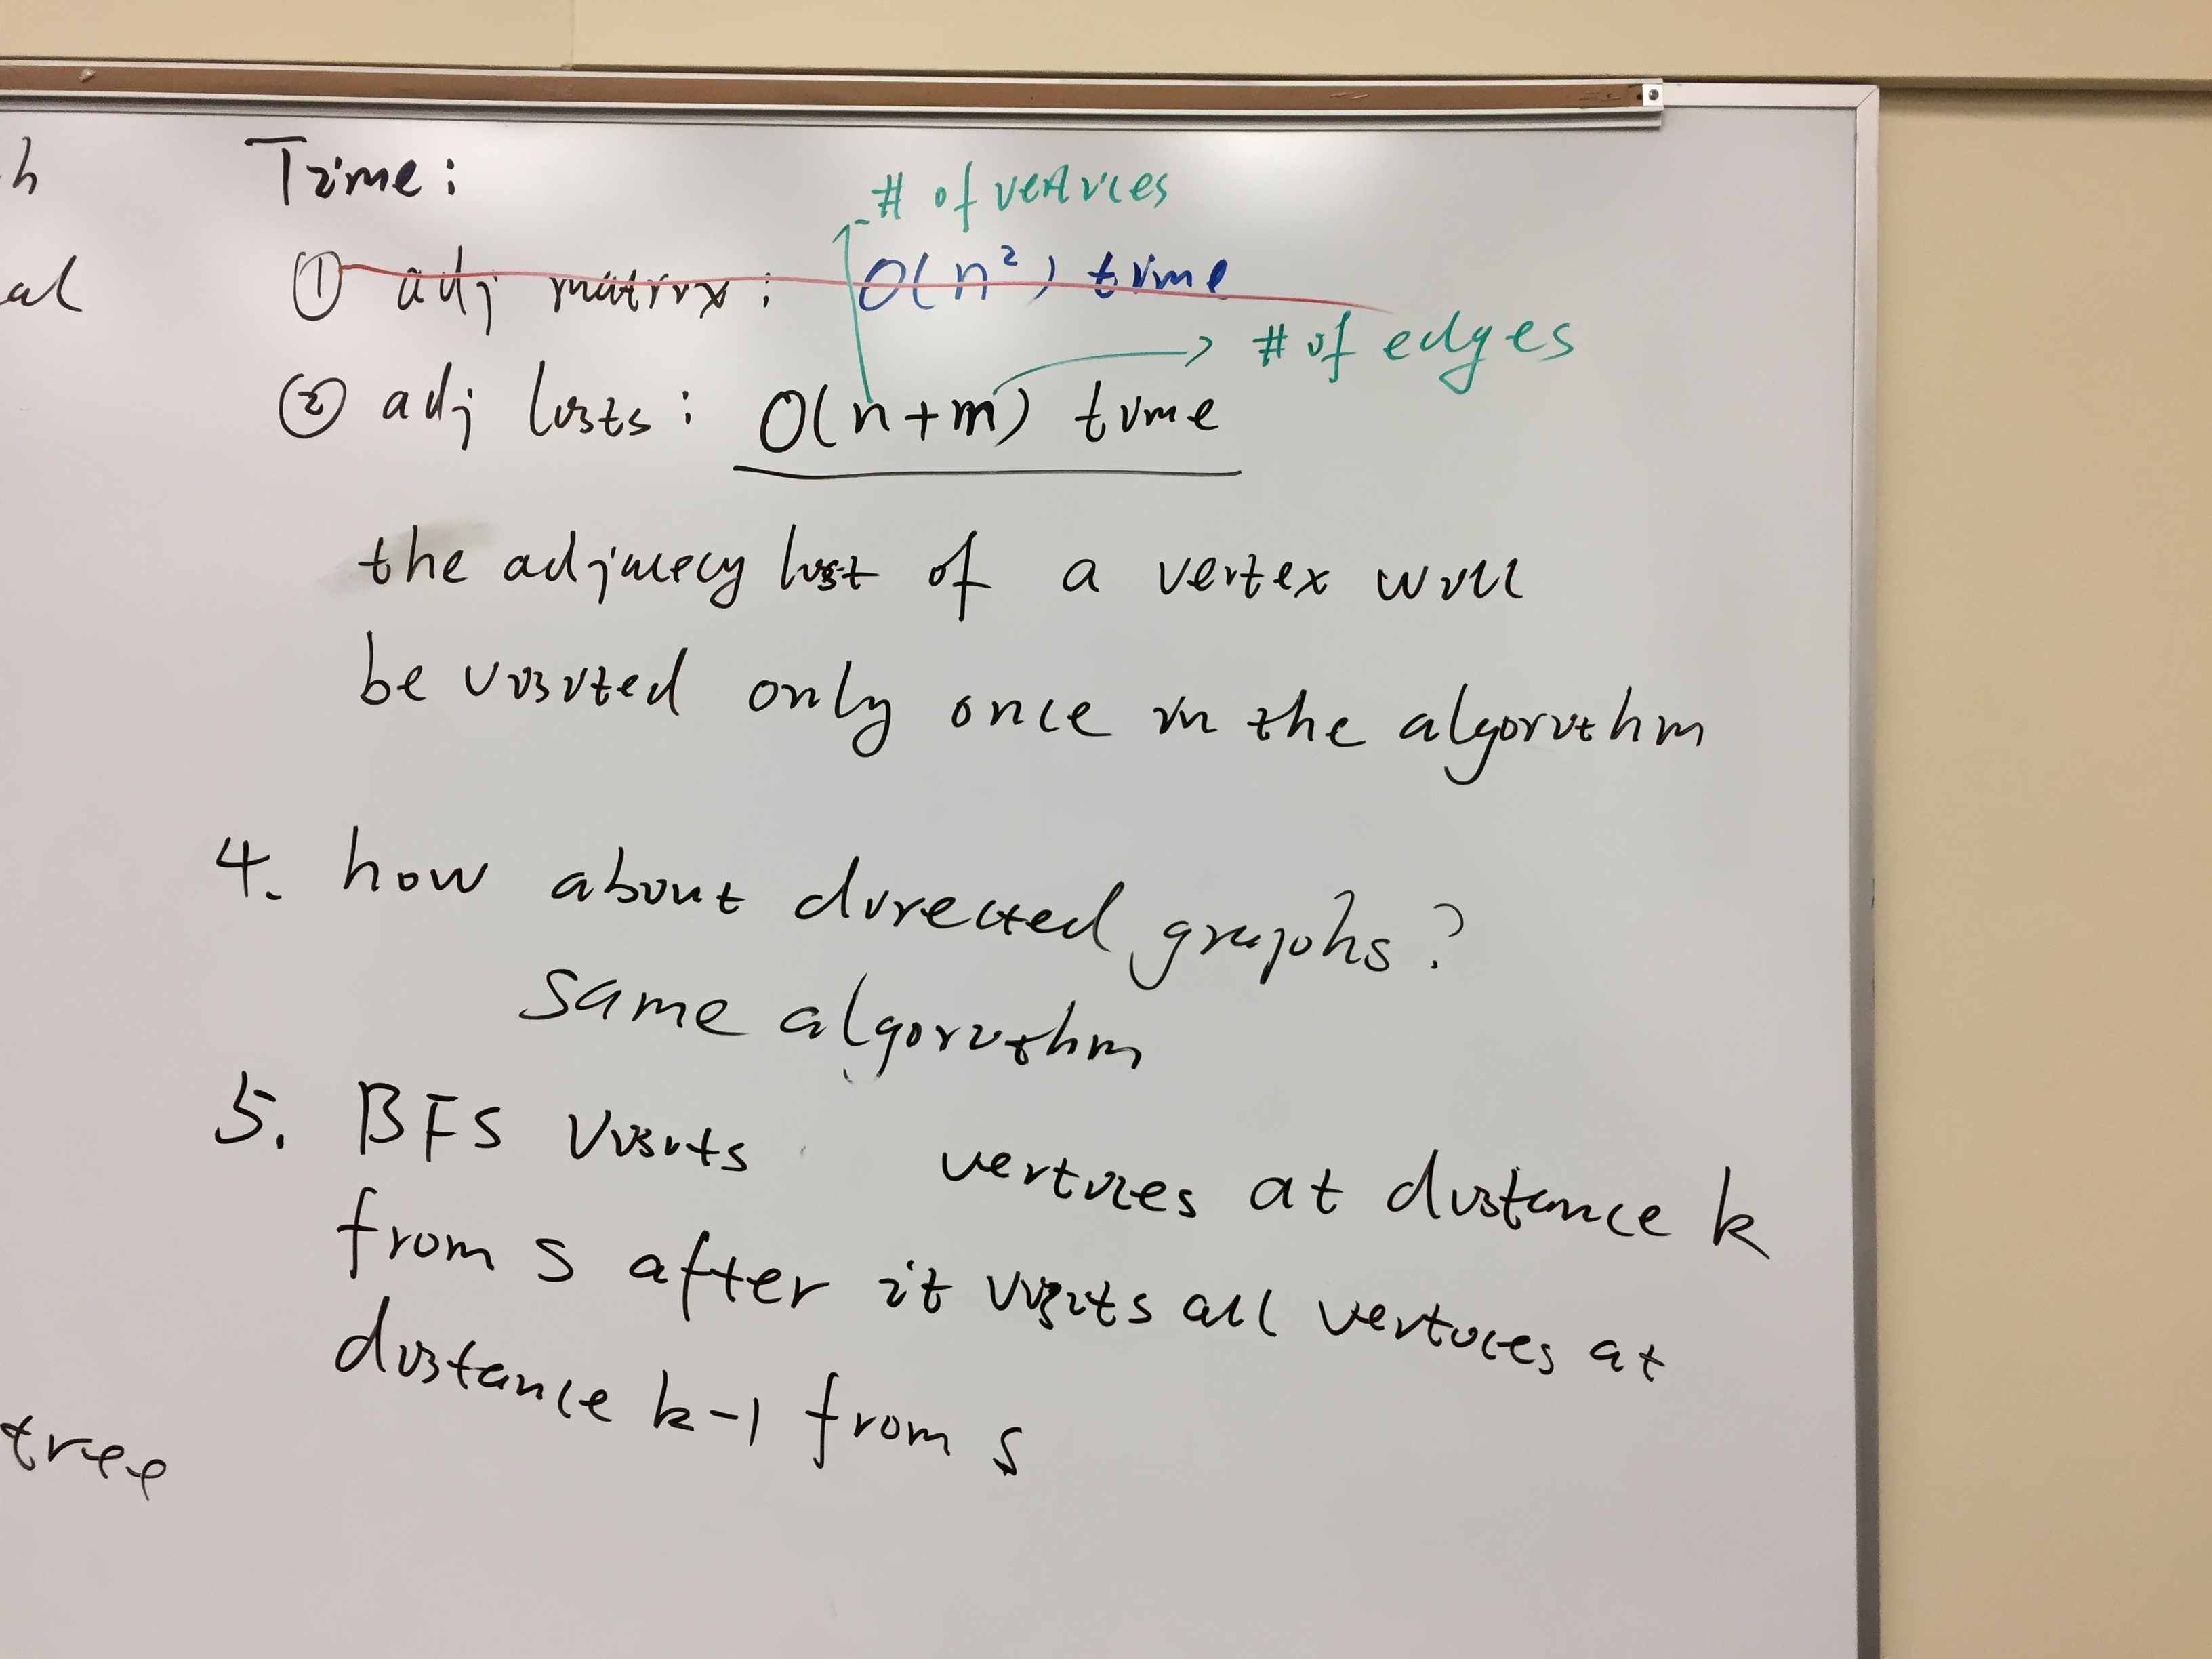 h
Time:
# of vertices
al
① adj matrix: O(n²) time
# of edges
② adj lists: O(n+m) time
the adjacecy list of a vertex will
be visited only once in the algorithm
4. how about directed graphs?
same algorithm
5. BFS visits vertices at distance k
from s after it visits all vertices at
distance k-1 from s
tree